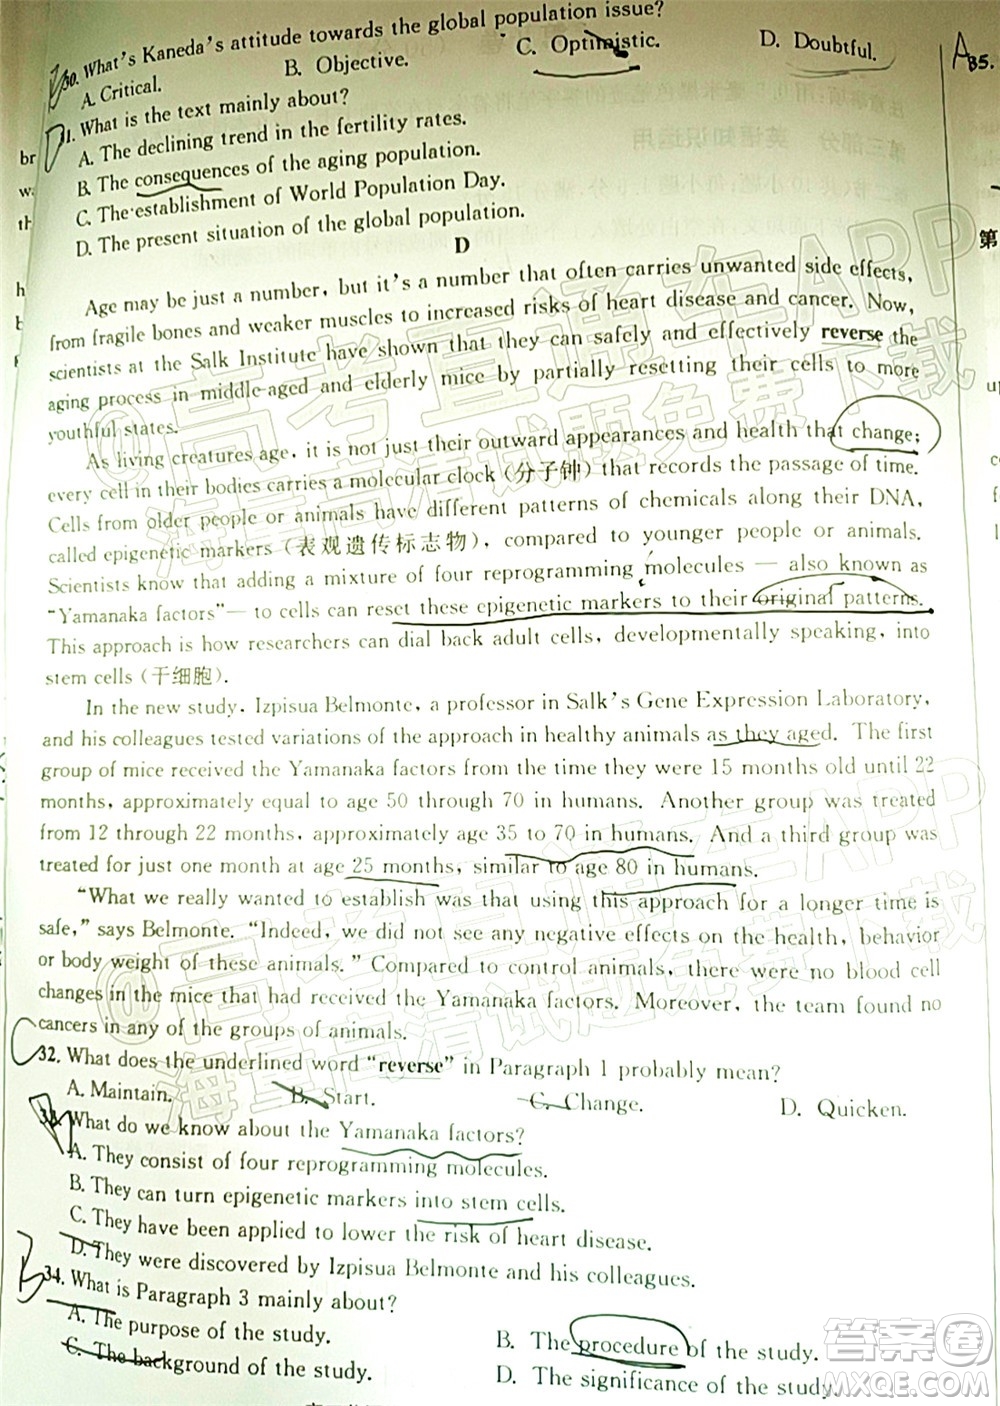 30. What's Kaneda's attitude towards the global population issue?
A. Critical.
B. Objective.
C. Optimistic.
D. Doubtful.
A 35.
1. What is the text mainly about?
A. The declining trend in the fertility rates.
B. The consequences of the aging population.
C. The establishment of World Population Day.
D. The present situation of the global population.
br
th
第
D
Age may be just a number, but it's a number that often carries unwanted side effects,
from fragile bones and weaker muscles to increased risks of heart disease and cancer. Now,
scientists at the Salk Institute have shown that they can safely and effectively reverse the
aging process in middle-aged and elderly mice by partially resetting their cells to more
youthful states.
As living creatures age, it is not just their outward appearances and health that change;
every cell in their bodies carries a molecular clock (分子钟) that records the passage of time.
Cells from older people or animals have different patterns of chemicals along their DNA,
called epigenetic markers (表观遗传标志物), compared to younger people or animals.
Scientists know that adding a mixture of four reprogramming molecules — also known as
"Yamanaka factors"— to cells can reset these epigenetic markers to their original patterns.
This approach is how researchers can dial back adult cells, developmentally speaking, into
stem cells (干细胞).
In the new study, Izpisua Belmonte, a professor in Salk's Gene Expression Laboratory,
and his colleagues tested variations of the approach in healthy animals as they aged. The first
group of mice received the Yamanaka factors from the time they were 15 months old until 22
months, approximately equal to age 50 through 70 in humans. Another group was treated
from 12 through 22 months, approximately age 35 to 70 in humans. And a third group was
treated for just one month at age 25 months, similar to age 80 in humans.
"What we really wanted to establish was that using this approach for a longer time is
safe," says Belmonte. "Indeed, we did not see any negative effects on the health, behavior
or body weight of these animals." Compared to control animals, there were no blood cell
changes in the mice that had received the Yamanaka factors. Moreover, the team found no
cancers in any of the groups of animals.
C
32. What does the underlined word "reverse" in Paragraph 1 probably mean?
A. Maintain.
B. Start.
C. Change.
D. Quicken.
33. What do we know about the Yamanaka factors?
A. They consist of four reprogramming molecules.
B. They can turn epigenetic markers into stem cells.
C. They have been applied to lower the risk of heart disease.
D. They were discovered by Izpisua Belmonte and his colleagues.
B
34. What is Paragraph 3 mainly about?
A. The purpose of the study.
B. The procedure of the study.
C. The background of the study.
D. The significance of the study.
@高考直通车APP
海量高清试题免费下载
@高考直通车APP
海量高清试题免费下载
答案圈
MXQE.COM